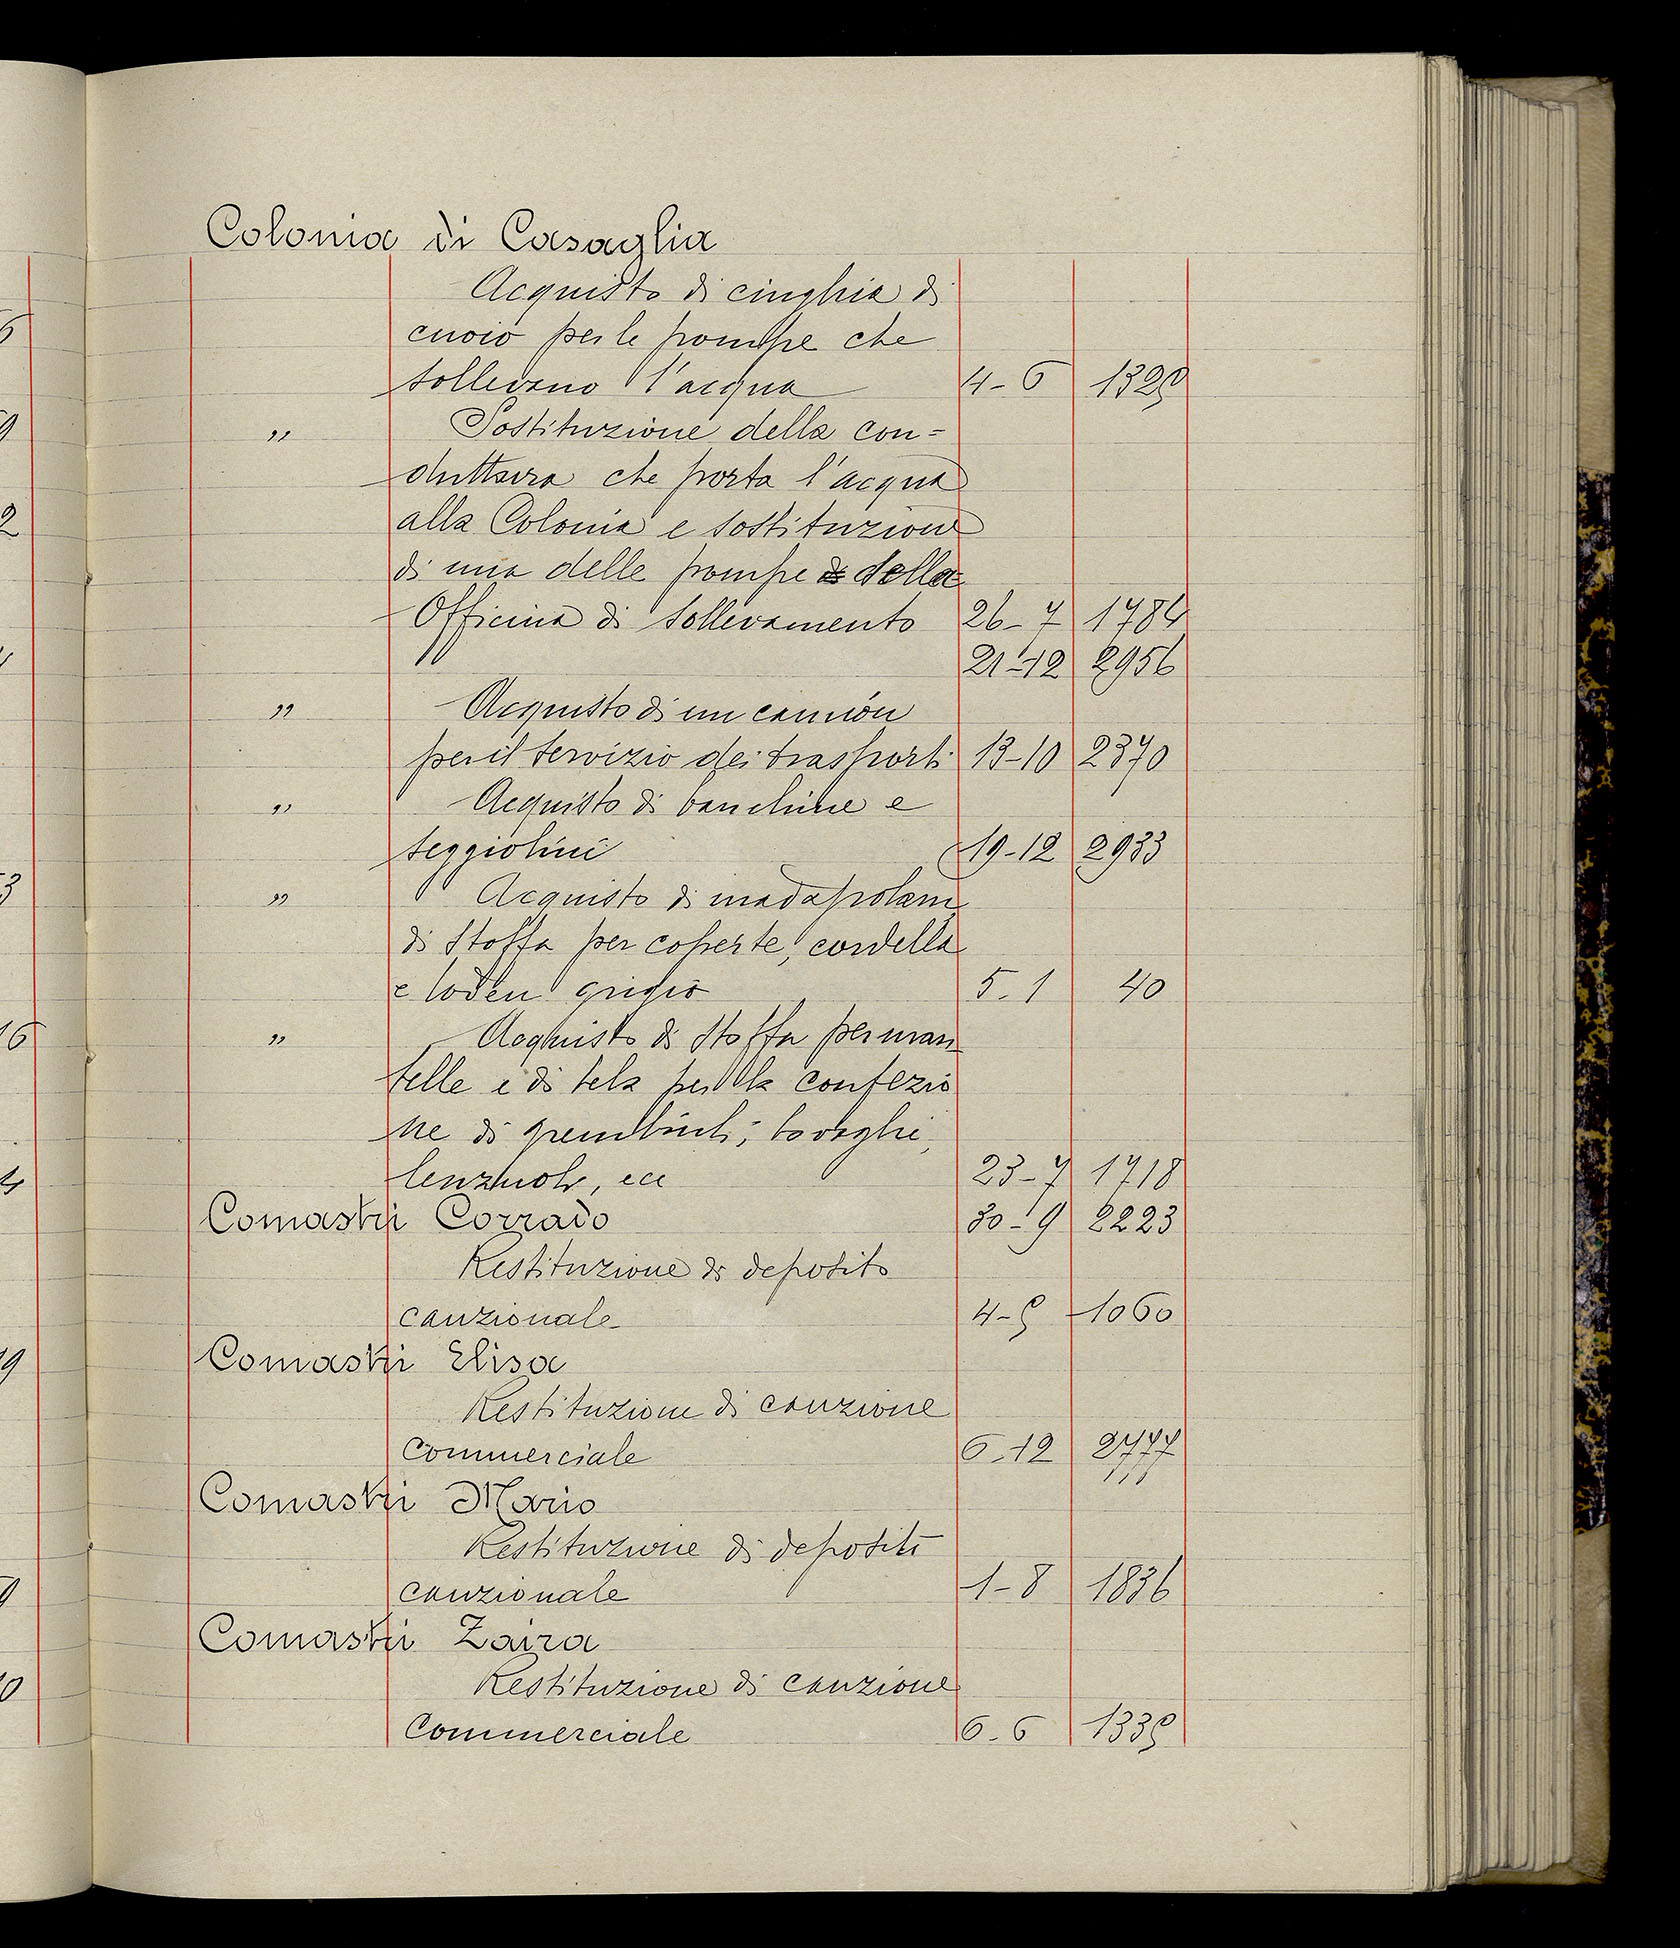 Colonia di Casaglia
Acquisto di cinghia di
cuoio per le pompe che
sollevano l'acqua 4-6 1325
" Sostituzione della con=
duttura che porta l'acqua
alla Colonia e sostituzione
di una delle pompe della
Officina di sollevamento 26-7 1784
21-12 2956
" Acquisto di un camion
per il servizio dei trasporti 13-10 2370
" Acquisto di banchine e
seggiolini 19-12 2933
" Acquisto di madapolam,
di stoffa per coperte, cordella
e loden grigio 5-1 40
" Acquisto di stoffa per man
telle e di tela per la confezio
ne di grembiuli, tovaglie,
lenzuola, ecc 23-7 1718
Comastri Corrado 30-9 2223
Restituzione di deposito
cauzionale 4-5 1060
Comastri Elisa
Restituzione di cauzione
commerciale 6-12 2777
Comastri Mario
Restituzione di deposito
cauzionale 1-8 1836
Comastri Zaira
Restituzione di cauzione
commerciale 6-6 1335